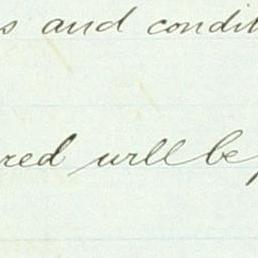 s and condit
red will be